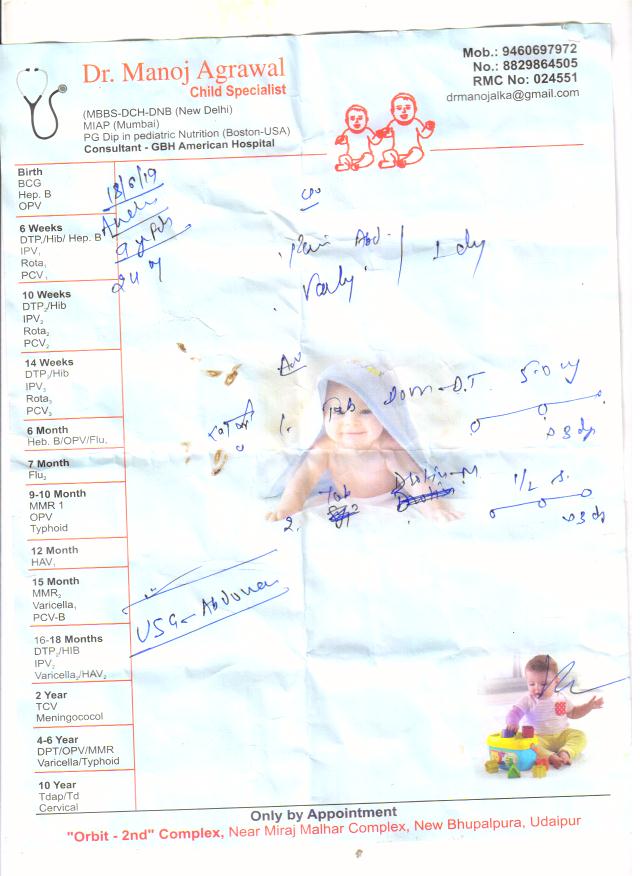 Dr. Manoj Agrawal
Child Specialist
(MBBS-DCH-DNB (New Delhi)
MIAP (Mumbai)
PG Dip in pediatric Nutrition (Boston-USA)
Consultant - GBH American Hospital
Mob.: 9460697972
No.: 8829864505
RMC No: 024551
drmanojalka@gmail.com
Birth
BCG
Hep. B
OPV
6 Weeks
DTP₁/Hib/ Hep. B
IPV₁
Rota₁
PCV₁
10 Weeks
DTP₂/Hib
IPV₂
Rota₂
PCV₂
14 Weeks
DTP₃/Hib
IPV₃
Rota₃
PCV₃
6 Month
Heb. B/OPV/Flu₁
7 Month
Flu₂
9-10 Month
MMR 1
OPV
Typhoid
12 Month
HAV₁
15 Month
MMR₂
Varicella₁
PCV-B
16-18 Months
DTP₁/HIB
IPV₂
Varicella₂/HAV₂
2 Year
TCV
Meningococol
4-6 Year
DPT/OPV/MMR
Varicella/Typhoid
10 Year
Tdap/Td
Cervical
18/6/19
c/o
Pain Abd. 1 dy
Adv
1. Tab Dom-D.T. 5.0 mg
x 3 dys
2. Tab Drotin-M 1/2
x 3 dy
USG - Abdomen
Only by Appointment
"Orbit - 2nd" Complex, Near Miraj Malhar Complex, New Bhupalpura, Udaipur